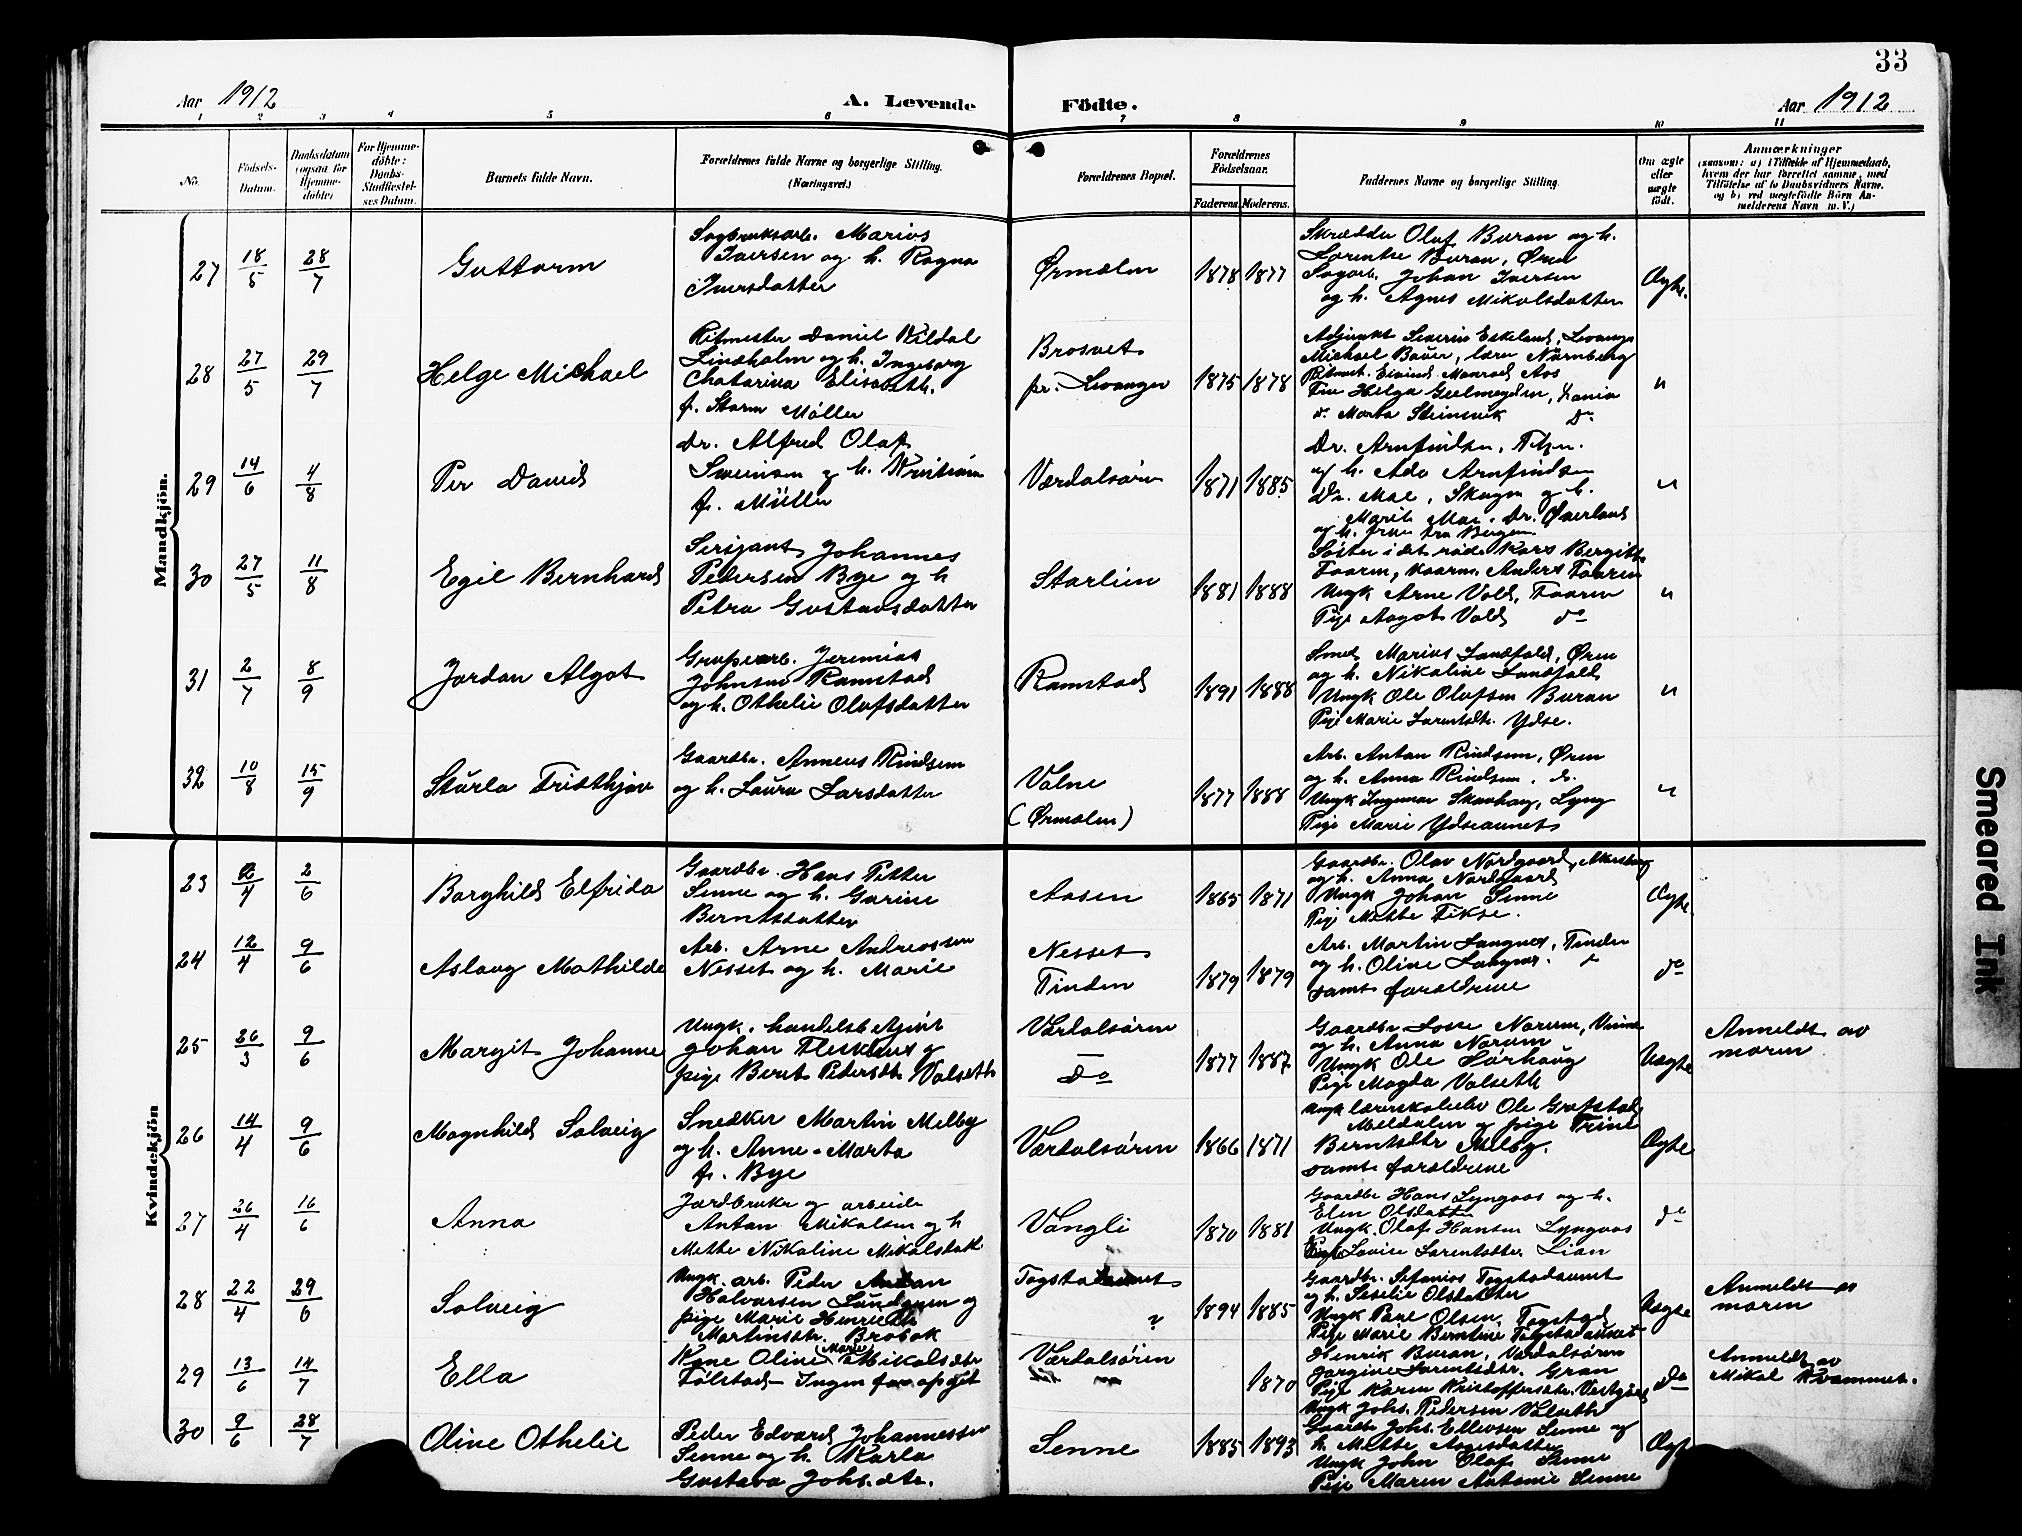 33
Aar 1912
A. Levende Födte.
Aar 1912
1 2 3 4 5 6 7 8 9 10 11
No.
Födsels-Datum.
Daabsdatum (ogsaa for Hjemme-döbte)
For Hjemme-döbte: Daabs-Stadfæstel-ses Datum.
Barnets fulde Navn.
Forældrenes fulde Navne og borgerlige Stilling. (Næringsvei.)
Forældrenes Bopæl.
Forældrenes Födselsaar.
Faderens. Moderens.
Faddernes Navne og borgerlige Stilling.
Om ægte eller uægte födt.
Anmærkninger
(saasom: a) i Tilfælde af Hjemmedaab, hvem der har forrettet samme, med Tilföielse af to Daabsvidners Navne, og b) ved uægtefödte Börn Anmelderens Navn m. V.)
Mandkjön.
27 18/5 28/7 Guttorm
Sagbruksarb. Marius
Iversen og h. Ragna
Iversdatter
Ørmelen 1878 1877
Skrædder Olaf Buran og h.
Lorentse Buran, Øren
Sagarb. Johan Iversen
og h. Agnes Mikalsdatter
Ægte.
28 27/5 29/7 Helge Michael
Ritmester Daniel Kildal
Lindholm og h. Ingeborg
Chatarina Elisabeth.
f. Storm Møller
Brosvet
pr. Levanger 1875 1878
Adjunkt Severin Eskeland, Levanger
Michael Bauer, lærer Nürnberg
Ritmest. Eivind Monrad Aas
Fru Helga Gulmeyden,
do Marta Steinsvik do
"
29 14/6 4/8 Per David
Dr. Alfred Olaf
Sveinsen og h. Kristiane
f. Müller
Værdalsøren 1871 1885
Dr. Arnfindsen,
og h. Ada Arnfindsen
Dr. Moe, Skogn og h.
Marit Moe. Dr. Øverland
og h. frue fra Bergen
"
30 27/5 11/8 Egil Bernhard
Sersjant Johannes
Pedersen Bye og h
Petra Gustavsdatter
Storlien 1881 1888
Søster i det røde Kors Bergitte
Faaren, Anders Faaren
Ungk Arne Vold, Faaren
Pige Aagot Vold do
"
31 2/7 8/9 Jordan Algot
Grubearb. Jeremias
Johnsen Ramstad
og h. Othelie Olafsdatter
Ramstad 1891 1888
Smed Marius Landfald, Øren
og h. Nikoline Landfald
Ungk Ole Olafsen Buran
Pige Marie Lorentsdtr. Ydse.
"
32 10/8 15/9 Sturla Fridthjov
Gaardbr. Anneus Rindsem
og h. Laura Larsdatter
Valne
(Ørmelen) 1877 1888
Arb. Anton Rindsem, Øren
og h. Anna Rindsem. do.
Ungk Ingemar Skavhaug, Lyng
Pige Marie Ydseaunet
"
Kvindekjön
23 2/6 Borghild Elfrida
Gaardbr. Hans Petter
Senne og h. Gurine
Berntsdatter
Aasen 1865 1871
Gaardbr. Olav Nordgaard,
og h. Anna Nordgaard
Ungk Johan Senne
Pige Mette Fikse.
Ægte
24 12/4 9/6 Aslaug Mathilde
Arb. Arne Andreassen
Nesset og h. Marie
Nesset
Tinden 1879 1879
Arb. Martin Langnes, Tinden
og h. Oline Langnes.
samt forældrene
do
25 26/3 9/6 Margit Johanne
Ungk. handelsbetjent
Johan Fleskhus og
pige Beret Pedersdtr Valseth
Værdalsøren
— do 1877 1887
Gaardbr Losse Norum, Vinne
og h. Anna Norum
Ungk Ole Sørhaug
Pige Magda Valseth
Uægte
Anmeldt av
moren
26 14/4 9/6 Magnhild Solveig
Snedker Martin Melby
og h. Anne-Marta
f. Bye
Værdalsøren 1866 1871
Ungk lærerskoleelev Ole Grefstad
Meldalen og pige Trine
Berntsdtr Melby.
samt forældrene
Ægte
27 26/4 16/6 Anna
Jordbruker og arbeider
Anton Mikalsen og h
Mette Nikoline Mikalsdatt.
Vangli 1870 1881
Gaardbr Hans Lyngaas og h.
Elen Olsdatter
Ungk. Olaf Hansen Lyngaas
Pige Lovise Lorentsdtr. Lian
do
28 22/4 29/6 Solveig
Ungk. arb. Peder
Halvorsen Lundgren og
pige Marie Henriette
Martinsdtr. Brobak
Togstadaunet
? 1894 1885
Gaardbr. Sefanias Togstadaunet
og h. Seselie Olsdatter
Ungk Paul Olsen, Togstad.
Pige Marie Berntine Togstadaunet
Uægte
Anmeldt av
moren
29 13/6 14/7 Ella
Kone Oline (Marie) Mikalsdtr
Følstad – Ingen far opgit
Værdalsøren 1870
Henrik Buran, Værdalsøren
Jørgine Lorentsdtr. Gran
Pige Karen Kristoffersdtr. Vestgrind
Ungk Johs. Pedersen Valseth
do
Anmeldt av
Mikal Kvammet.
30 9/6 28/7 Oline Othelie
Peder Edvard Johannessen
Senne og h. Karla
Gustava Johs.dtr.
Senne 1885 1893
Gaardbr Johs. Ellevsen Senne og
h. Mette
Ungk John Olaf Senne
Pige Maren Antonie Senne
Ægte
Smeared Ink